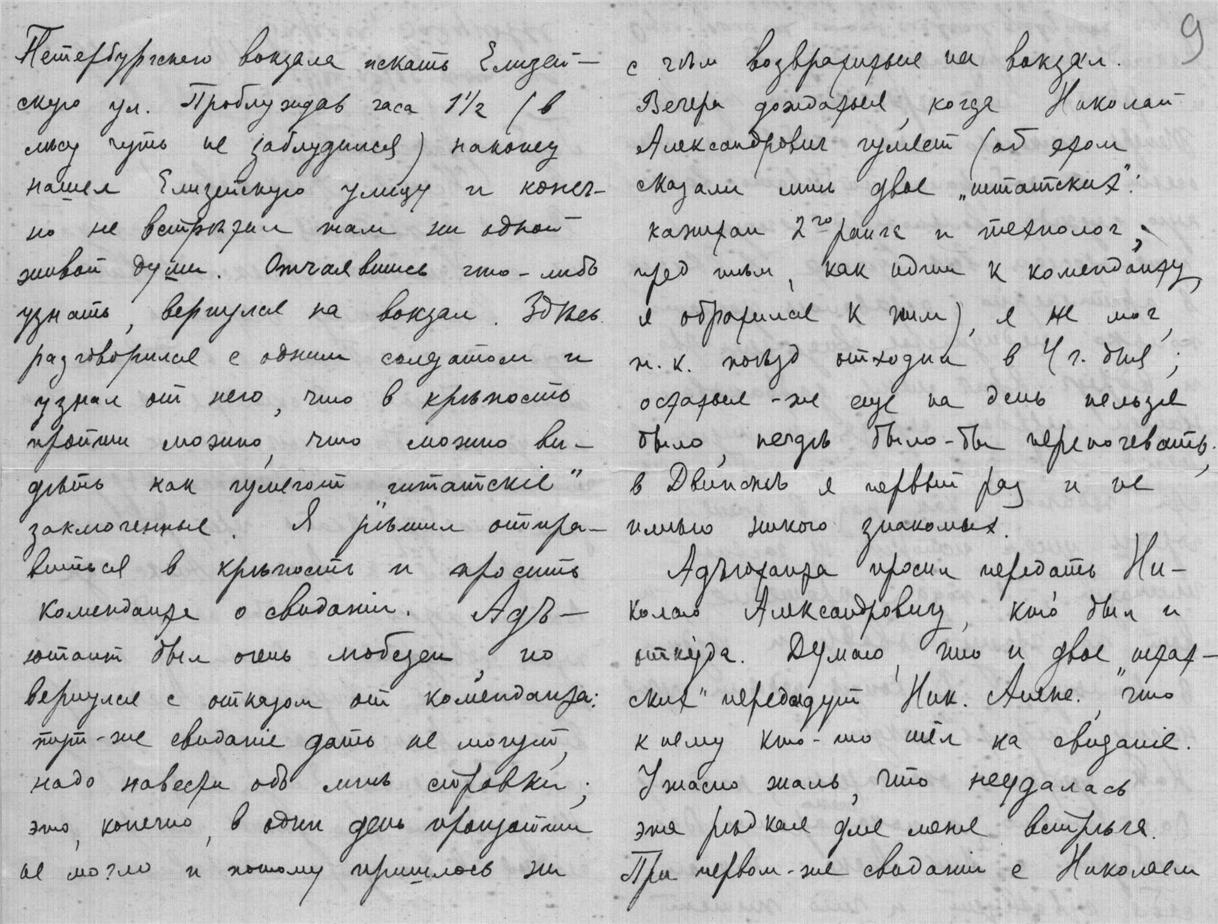 9
Петербургского вокзала искать Елизей-
скую ул. Проблуждав часа 1½ (в
лѣсу чуть не заблудился) наконец
нашел Елизейскую улицу и конеч-
но не встрѣтил там ни одной
живой души. Отчаявшись что-либо
узнать, вернулся на вокзал. Здѣсь
разговорился с одним солдатом и
узнал от него, что в крѣпость
пройти можно, что можно ви-
дѣть как гуляют "штатскіе"
заключенные. Я рѣшил отпра-
виться в крѣпость и просить
коменданта о свиданіи. Адъ-
ютант был очень любезен, но
вернулся с отказом от коменданта:
тут-же свиданіе дать не могут,
надо навести обо мнѣ справки;
это, конечно, в один день произойти
не могло и потому пришлось ни
с чѣм возвратиться на вокзал.
Вечера дождаться, когда Николай
Александрович гуляет (об этом
сказали мнѣ двое "штатских":
капитан 2го ранга и технолог;
пред тѣм, как идти к коменданту,
я обратился к ним), я не мог,
т.к. поѣзд отходил в 4 ч. дня;
остаться-же еще на день нельзя
было, негдѣ было-бы переночевать,
в Двинскѣ я первый раз и не
имѣю никого знакомых.
Адъютанта просил передать Ни-
колаю Александровичу, кто был и
откуда. Думаю, что и двое "штат-
ских" передадут Ник. Алекс., что
к нему кто-то шел на свиданіе.
Ужасно жаль, что неудалась
эта рѣдкая для меня встрѣча.
При первом-же свиданіи с Николаем